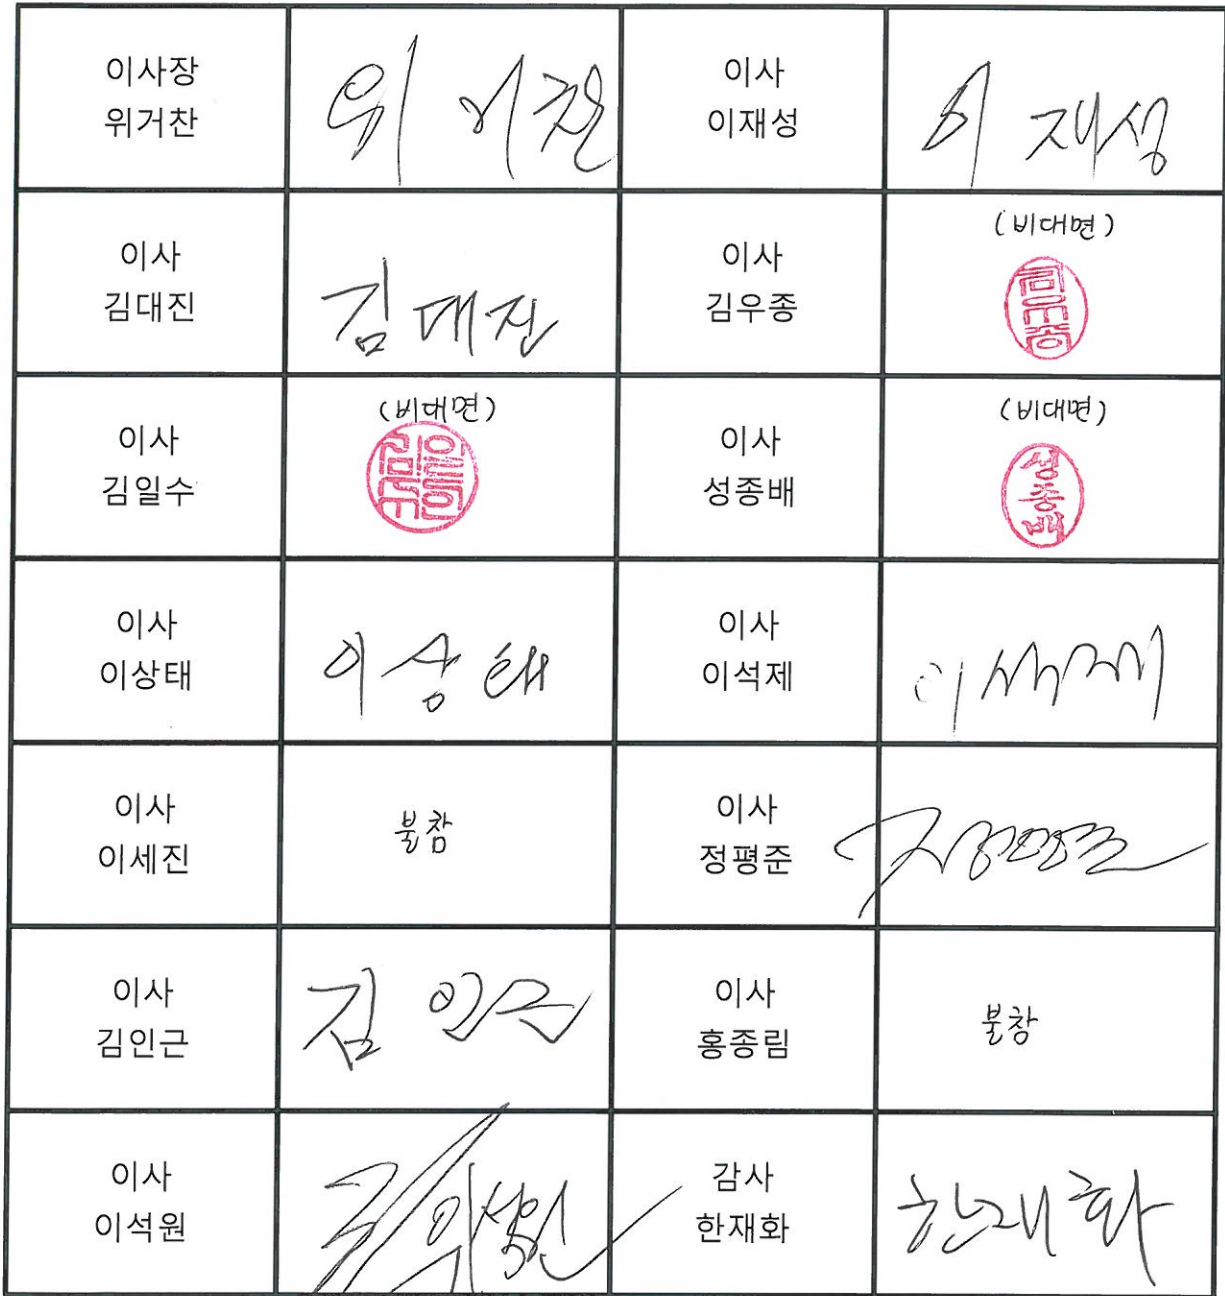 이사장
위거찬
위거찬
이사
이재성
이재성
이사
김대진
김대진
이사
김우종
(비대면)
이사
김일수
(비대면)
이사
성종배
(비대면)
성종배
이사
이상태
이상태
이사
이석제
이석제
이사
이세진
불참
이사
정평준
이사
김인근
김인근
이사
홍종림
불참
이사
이석원
감사
한재화
한재화